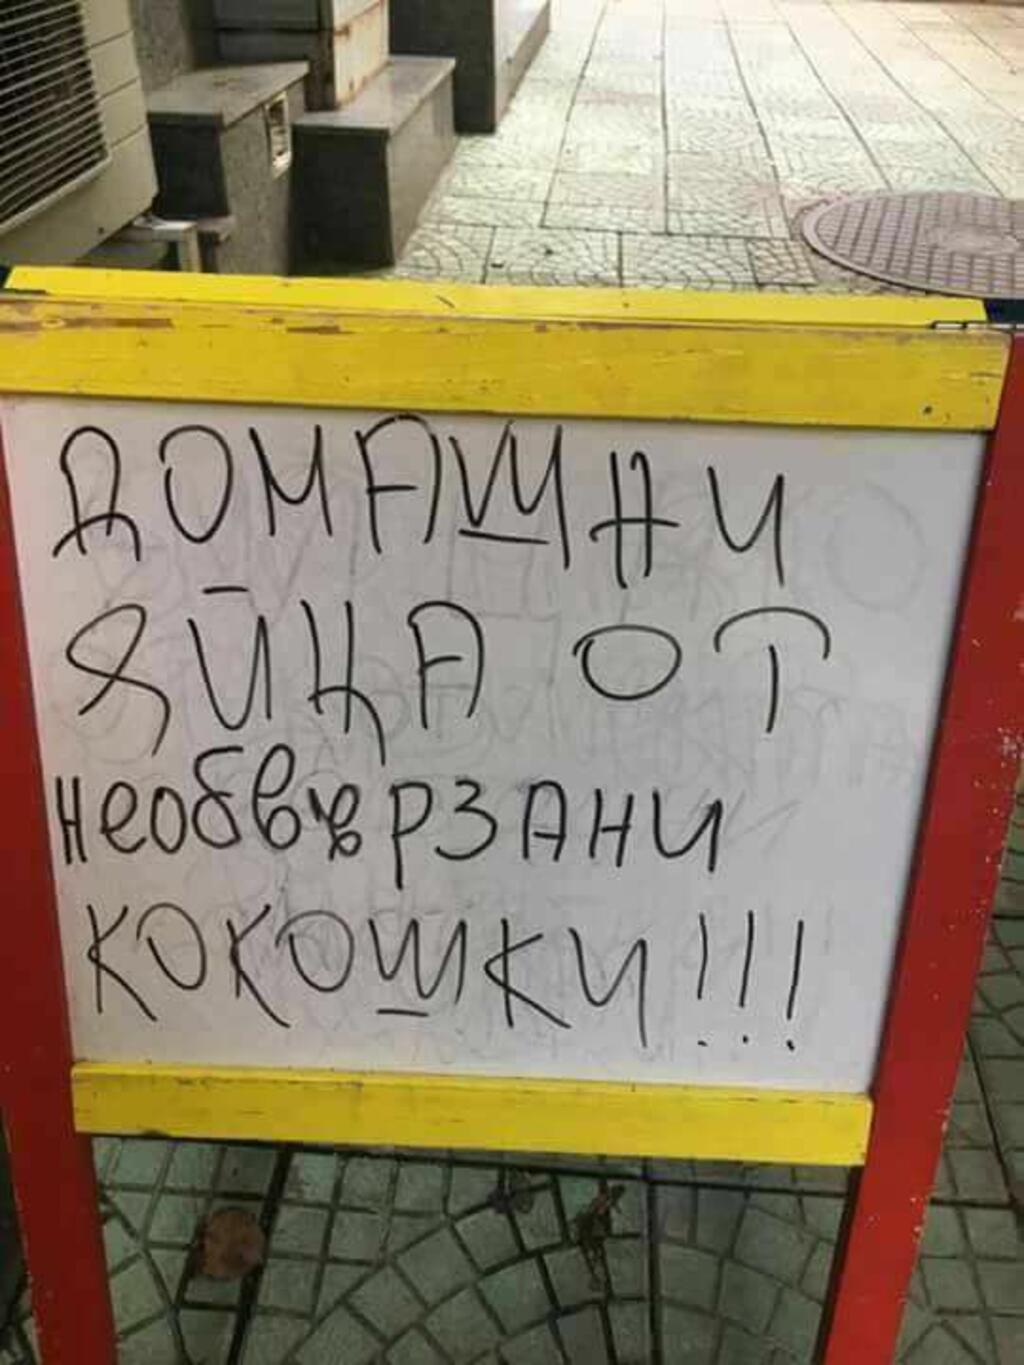 ДОМАШНИ
ЯЙЦА ОТ
необвързани
КОКОШКИ!!!